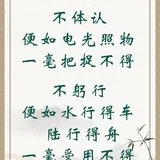 不体认
便如电光照物
一毫把捉不得
不躬行
便如水行得车
陆行得舟
一毫受用不得